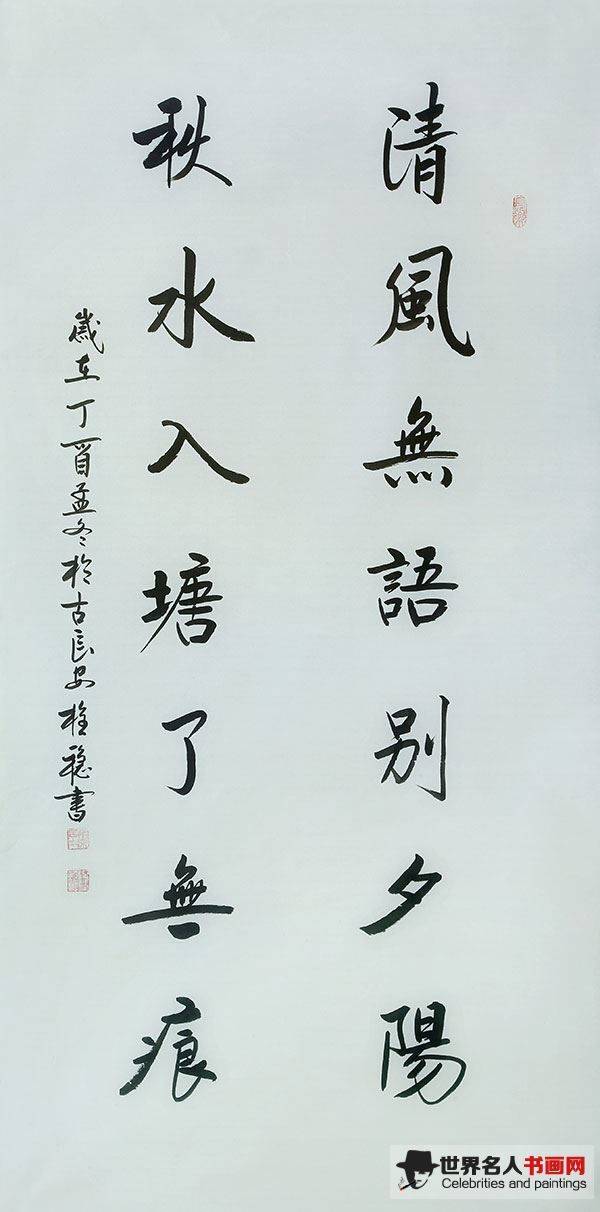 清風無語別夕陽
秋水入塘了無痕
歲在丁酉孟冬於古長安柱稳書
世界名人书画网
Celebrities and paintings